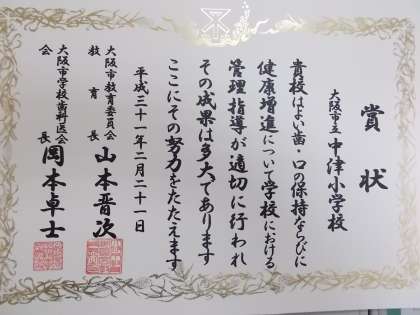 賞状
大阪市立 中津小学校
貴校はよい歯・口の保持ならびに
健康増進について学校における
管理指導が適切に行われ
その成果は多大であります
ここにその努力をたたえます
平成三十一年二月二十一日
大阪市教育委員会
教育長 山本晋次
大阪市学校歯科医会
会長 岡本卓士